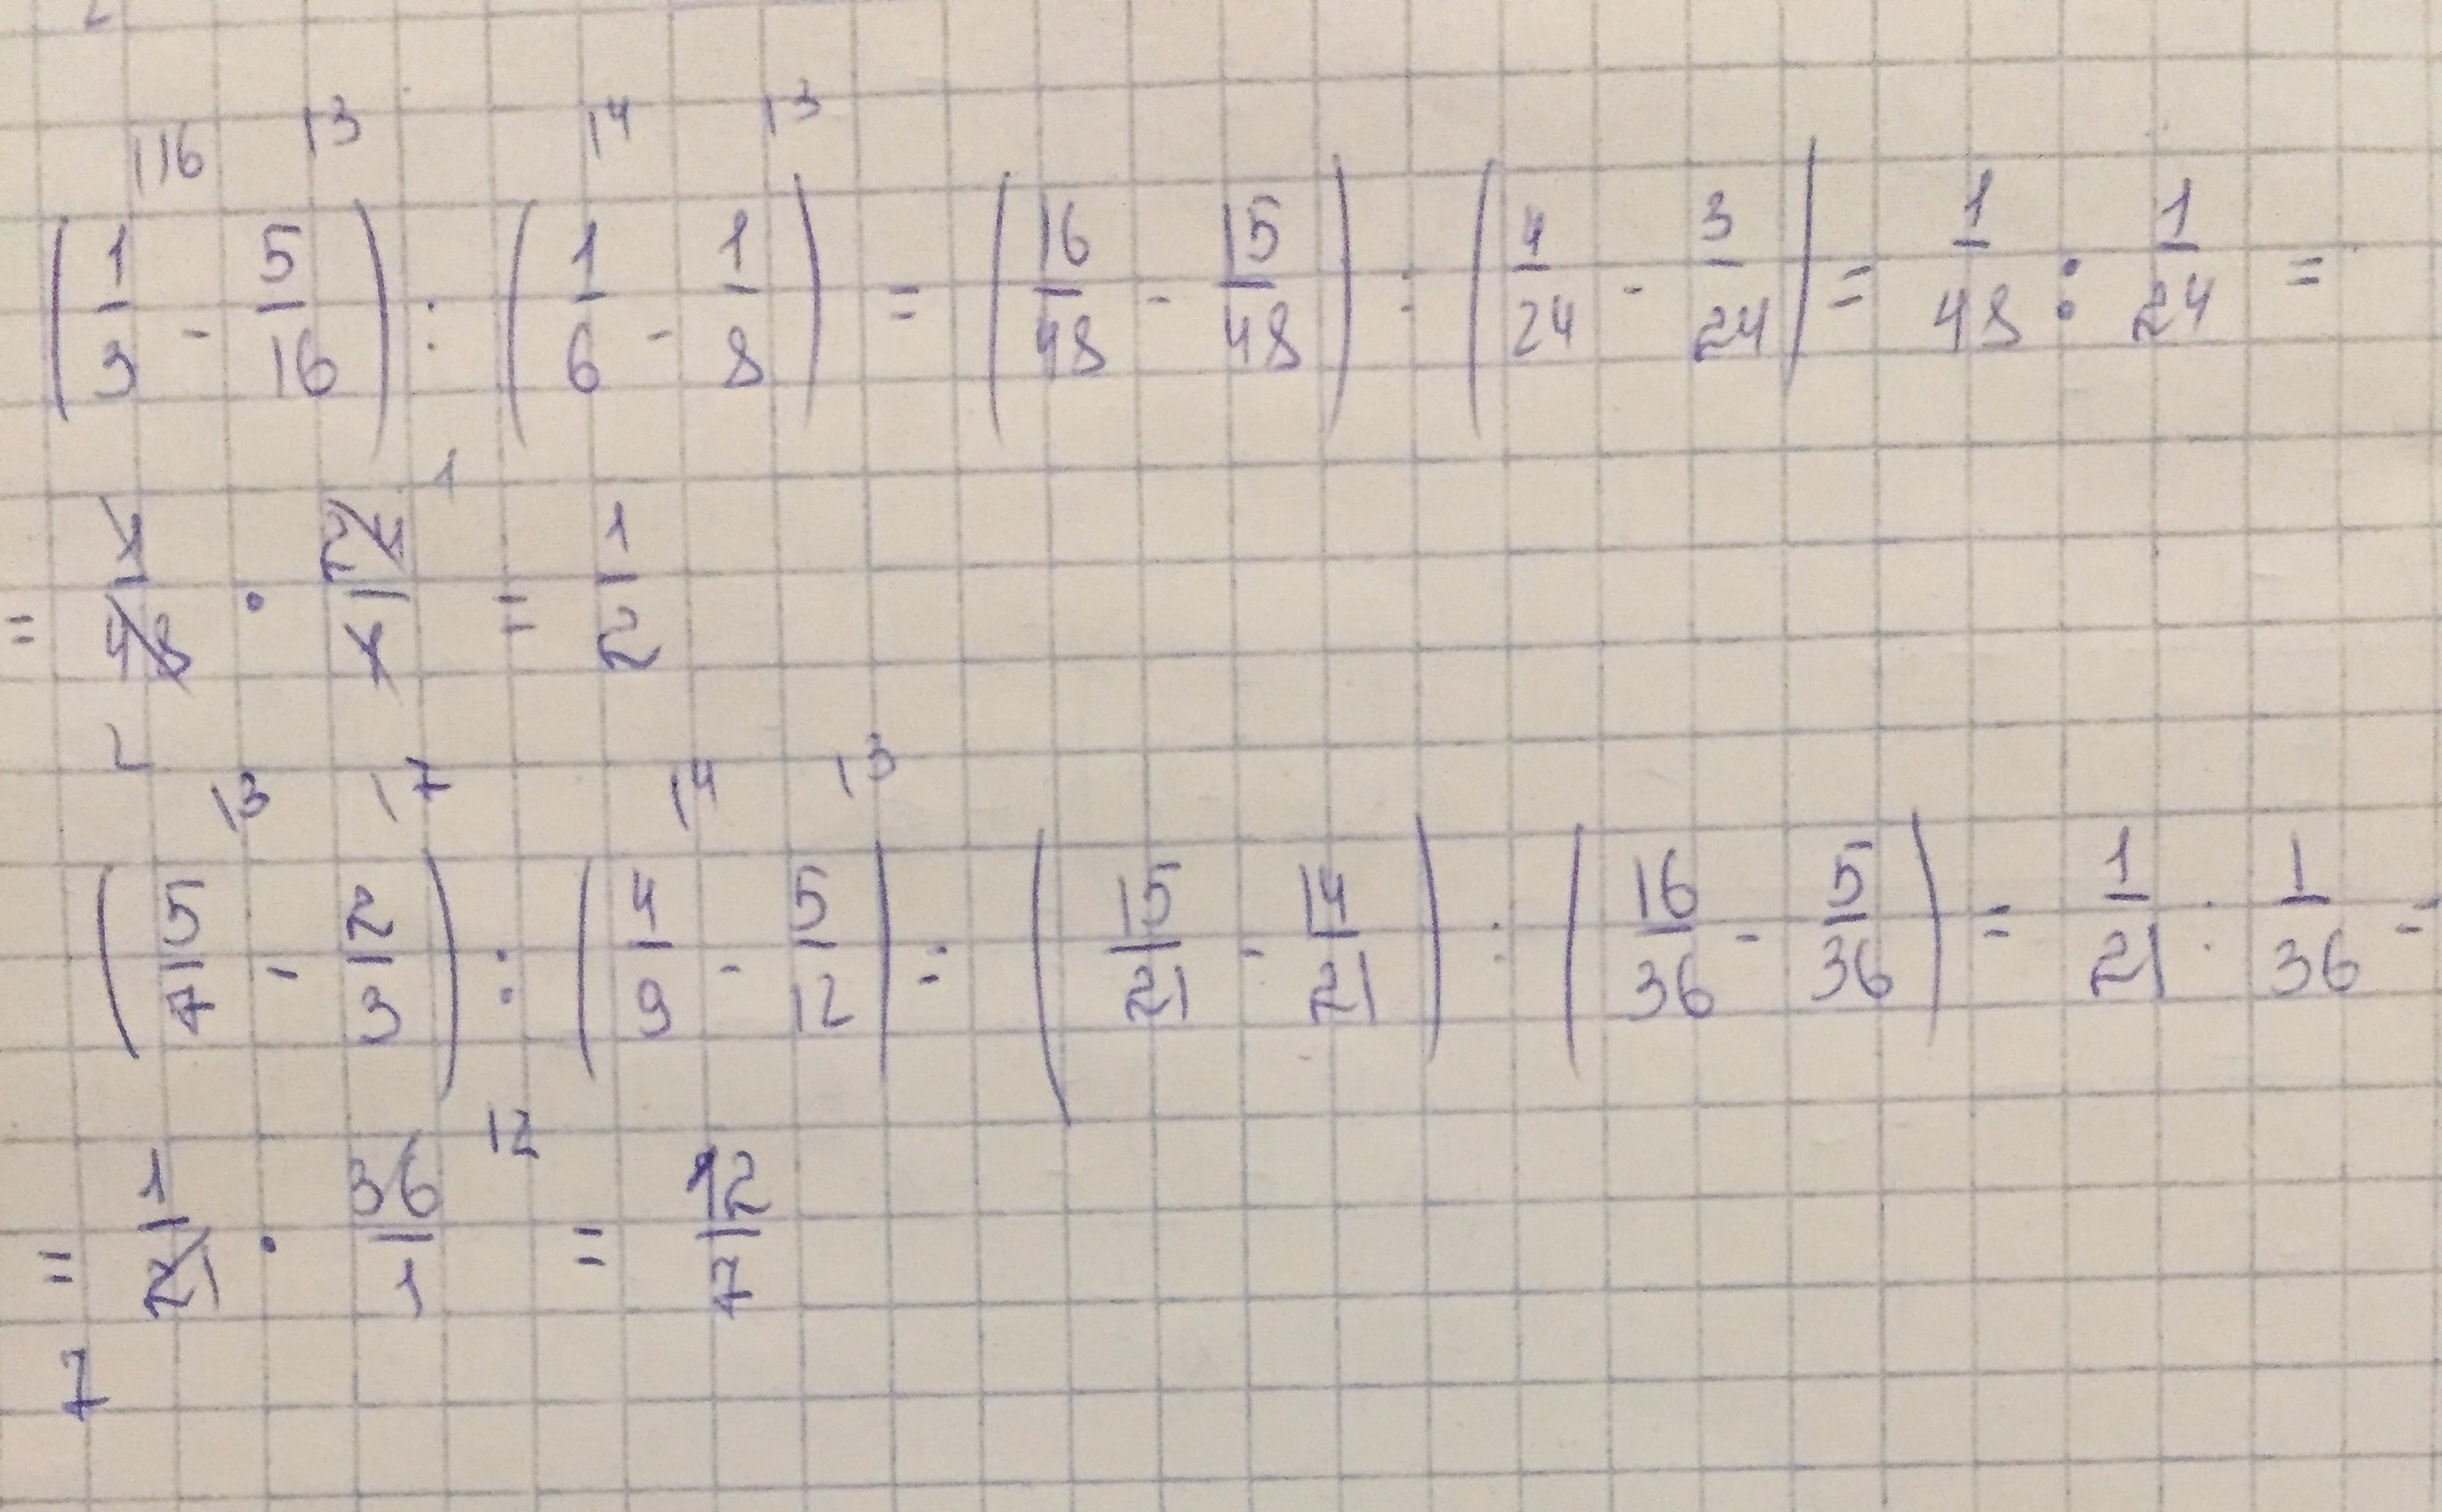 |16 |3 |4 |3
(1/3 - 5/16) : (1/6 - 1/8) = (16/48 - 15/48) : (4/24 - 3/24) = 1/48 : 1/24 =
1
= 1/48 · 24/1 = 1/2
2
|3 |7 |4 |3
(5/7 - 2/3) : (4/9 - 5/12) = (15/21 - 14/21) : (16/36 - 5/36) = 1/21 : 1/36 =
12
= 1/21 · 36/1 = 12/7
7